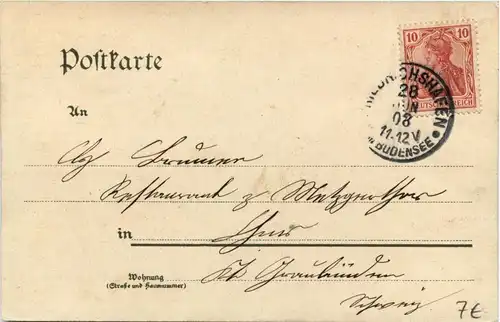 Postkarte
10 10
DEUTSCHES REICH
FRIEDRICHSHAFEN
28
JUN
08
11-12 V
BODENSEE
An
Brunner
Restaurant z Metzgerthor
in Chur
Wohnung
(Straße und Hausnummer)
Kt Graubünden
Schweiz
7€